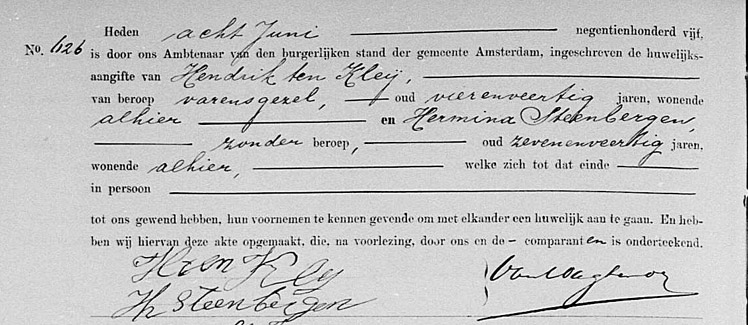 Heden acht Juni negentienhonderd vijf,
No. 626 is door ons Ambtenaar van den burgerlijken stand der gemeente Amsterdam, ingeschreven de huwelijks-
aangifte van Hendrik ten Kleij,
van beroep varensgezel, oud vierenveertig jaren, wonende
alhier en Hermina Steenbergen,
zonder beroep, oud zevenenveertig jaren,
wonende alhier, welke zich tot dat einde
in persoon
tot ons gewend hebben, hun voornemen te kennen gevende om met elkander een huwelijk aan te gaan. En heb-
ben wij hiervan deze akte opgemaakt, die, na voorlezing, door ons en de comparanten is onderteekend.
H ten Kleij
H Steenbergen